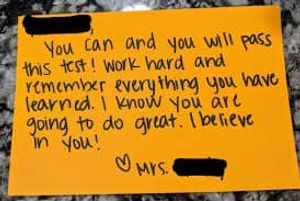 You can and you will pass
this test! Work hard and
remember everything you have
learned. I know you are
going to do great. I believe
in you!
♡ Mrs.